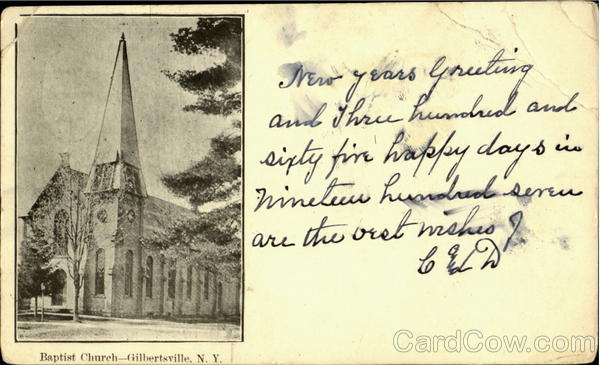 New years Greeting
and Three hundred and
sixty five happy days in
Nineteen hundred seven
are the best wishes of
C & L D
Baptist Church—Gilbertsville, N. Y.
CardCow.com